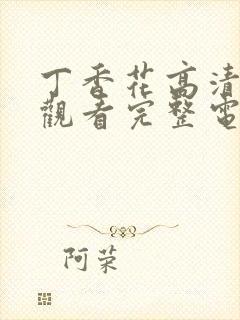 丁香花高清
觀看完整電
阿荣